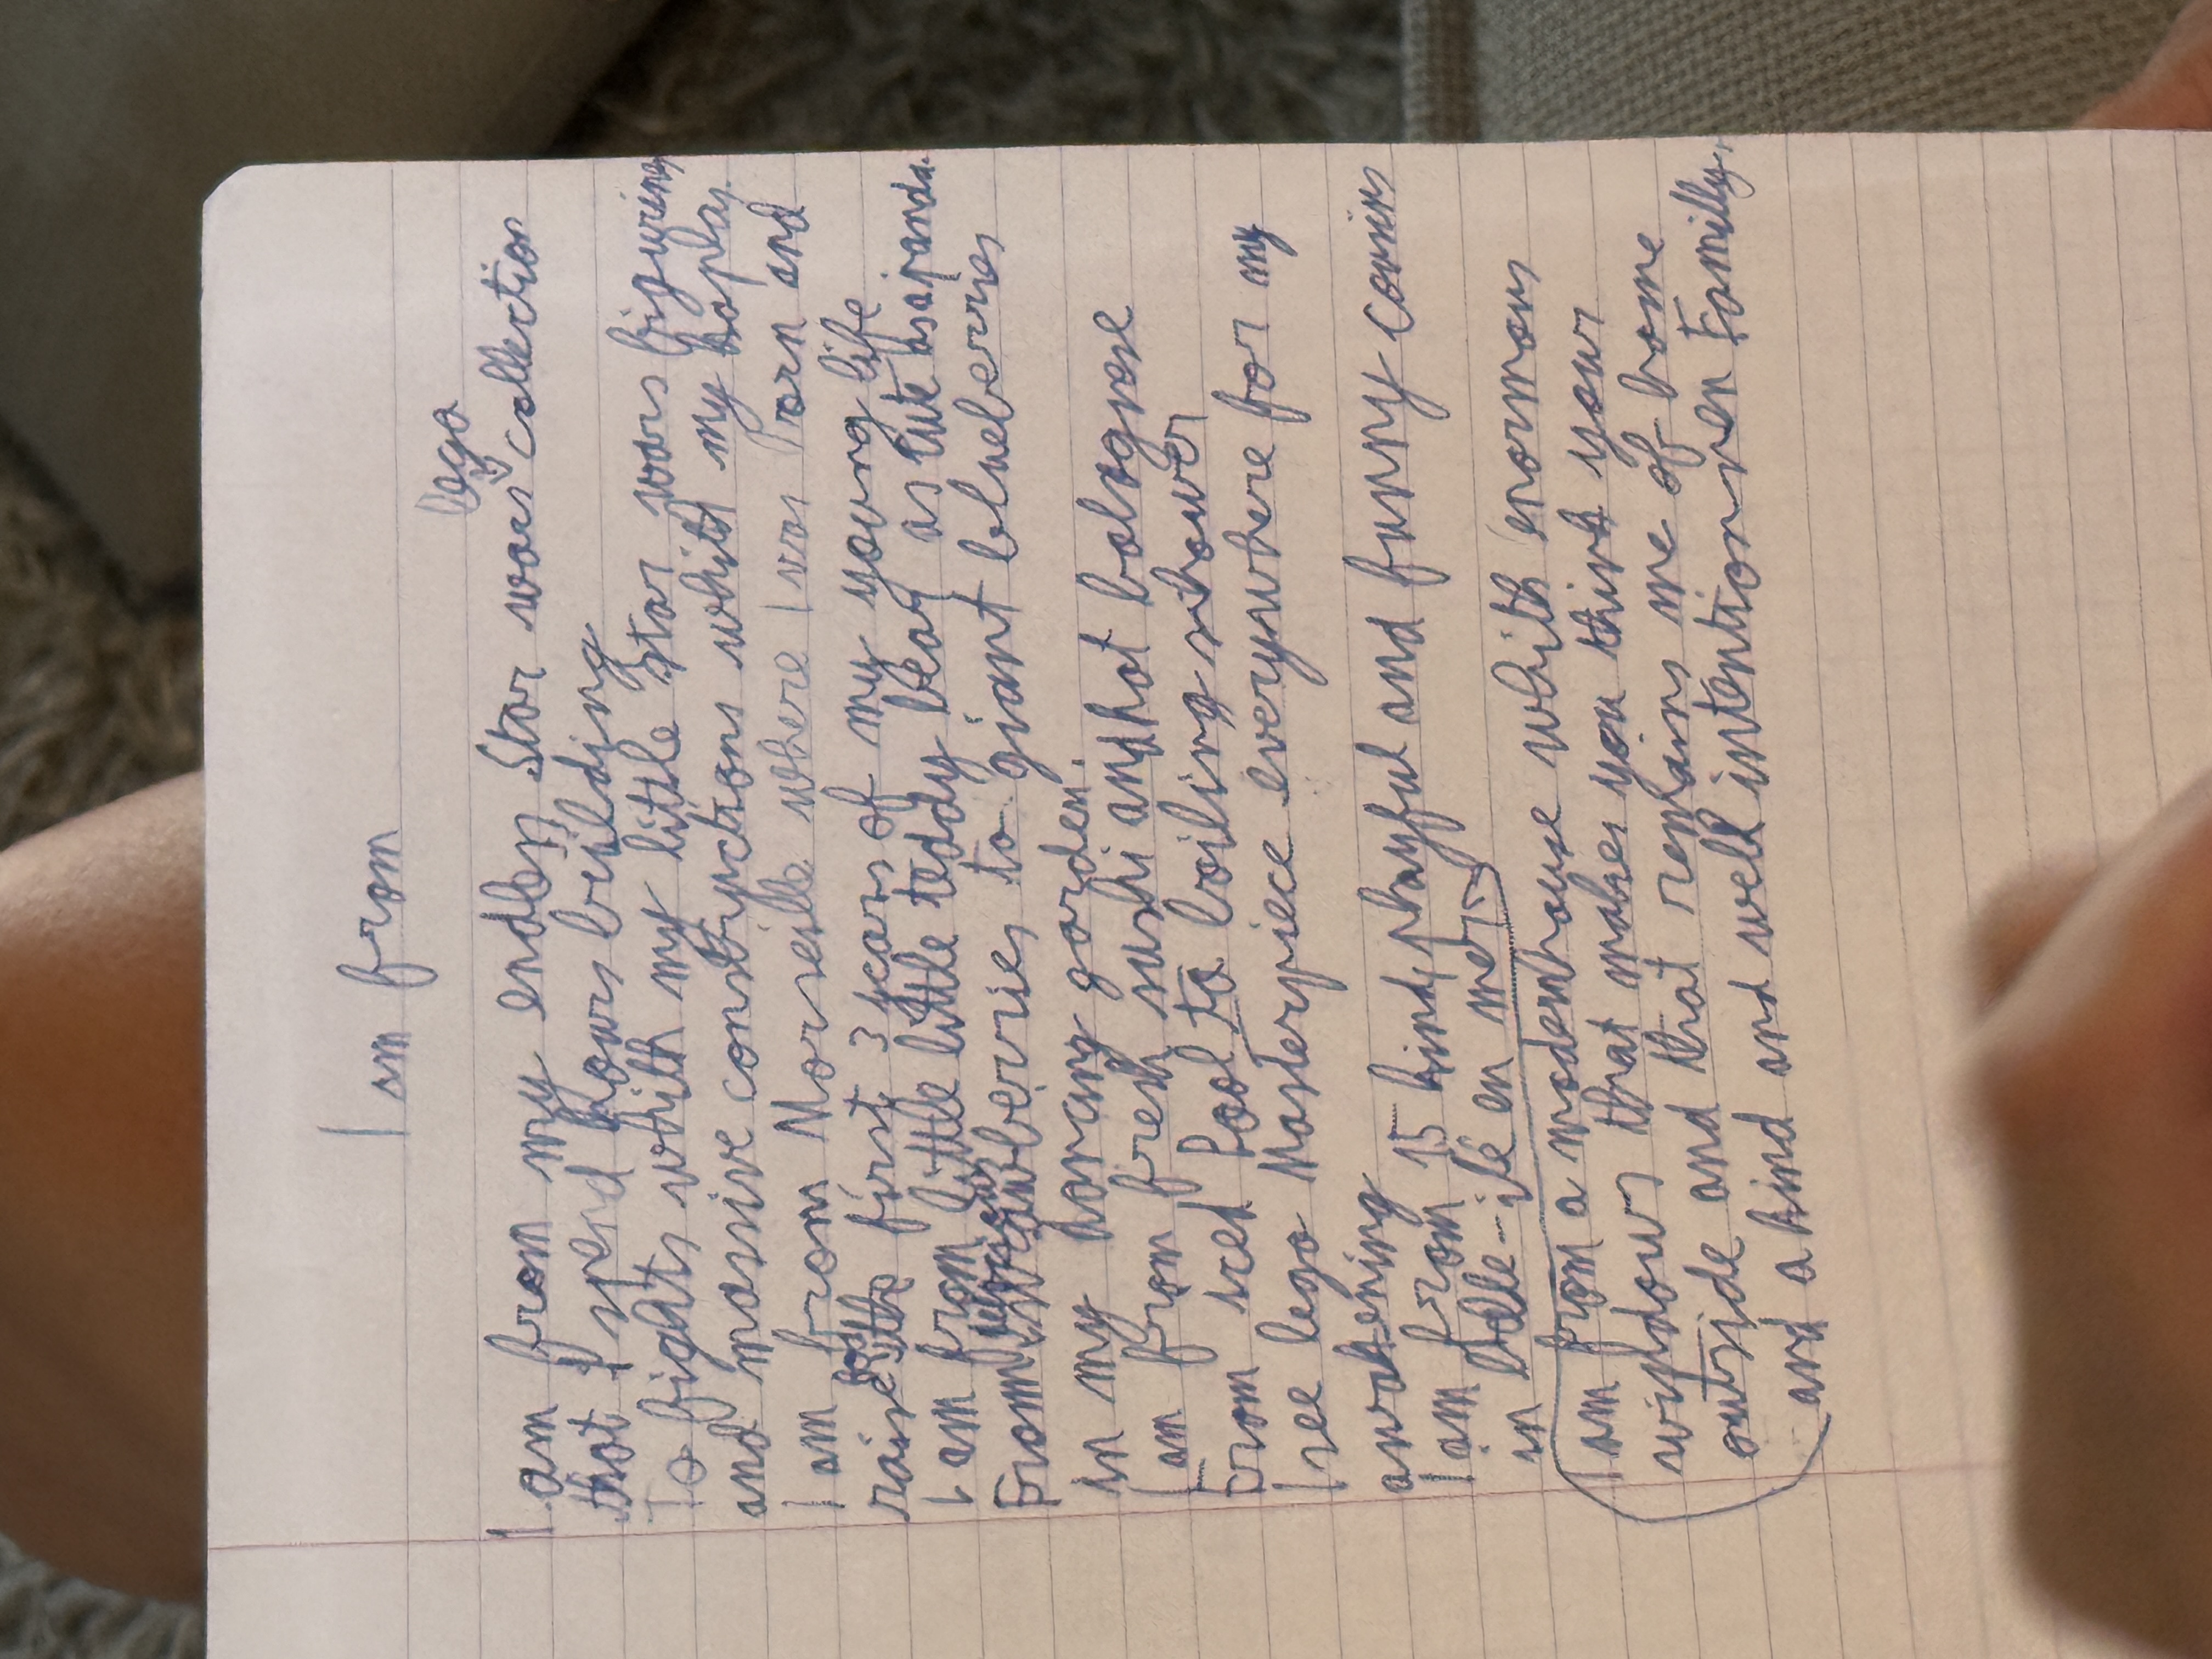 I am from
lego
I am from my endless Star wars collection
that I spend hours building
To fights whith my little star wars figurines
and massive constructions whith my koplas.
I am from Marseille where I was born and
raised the first 3 years of my young life
I am from little little teddy bear as cute as a panda.
From strawberries to giant blueberries
in my harang garden.
I am from fresh sushi and hot bolognese
From iced Pool to boiling shower
I see lego Masterpiece everywhere for my
awakening
I am from 15 kind, playful and funny cousins
in belle-ile en mer
I am from a modern house whith enormous
windows that makes you think your
outside and that remains me of home
and a kind and well intentionnen Family.